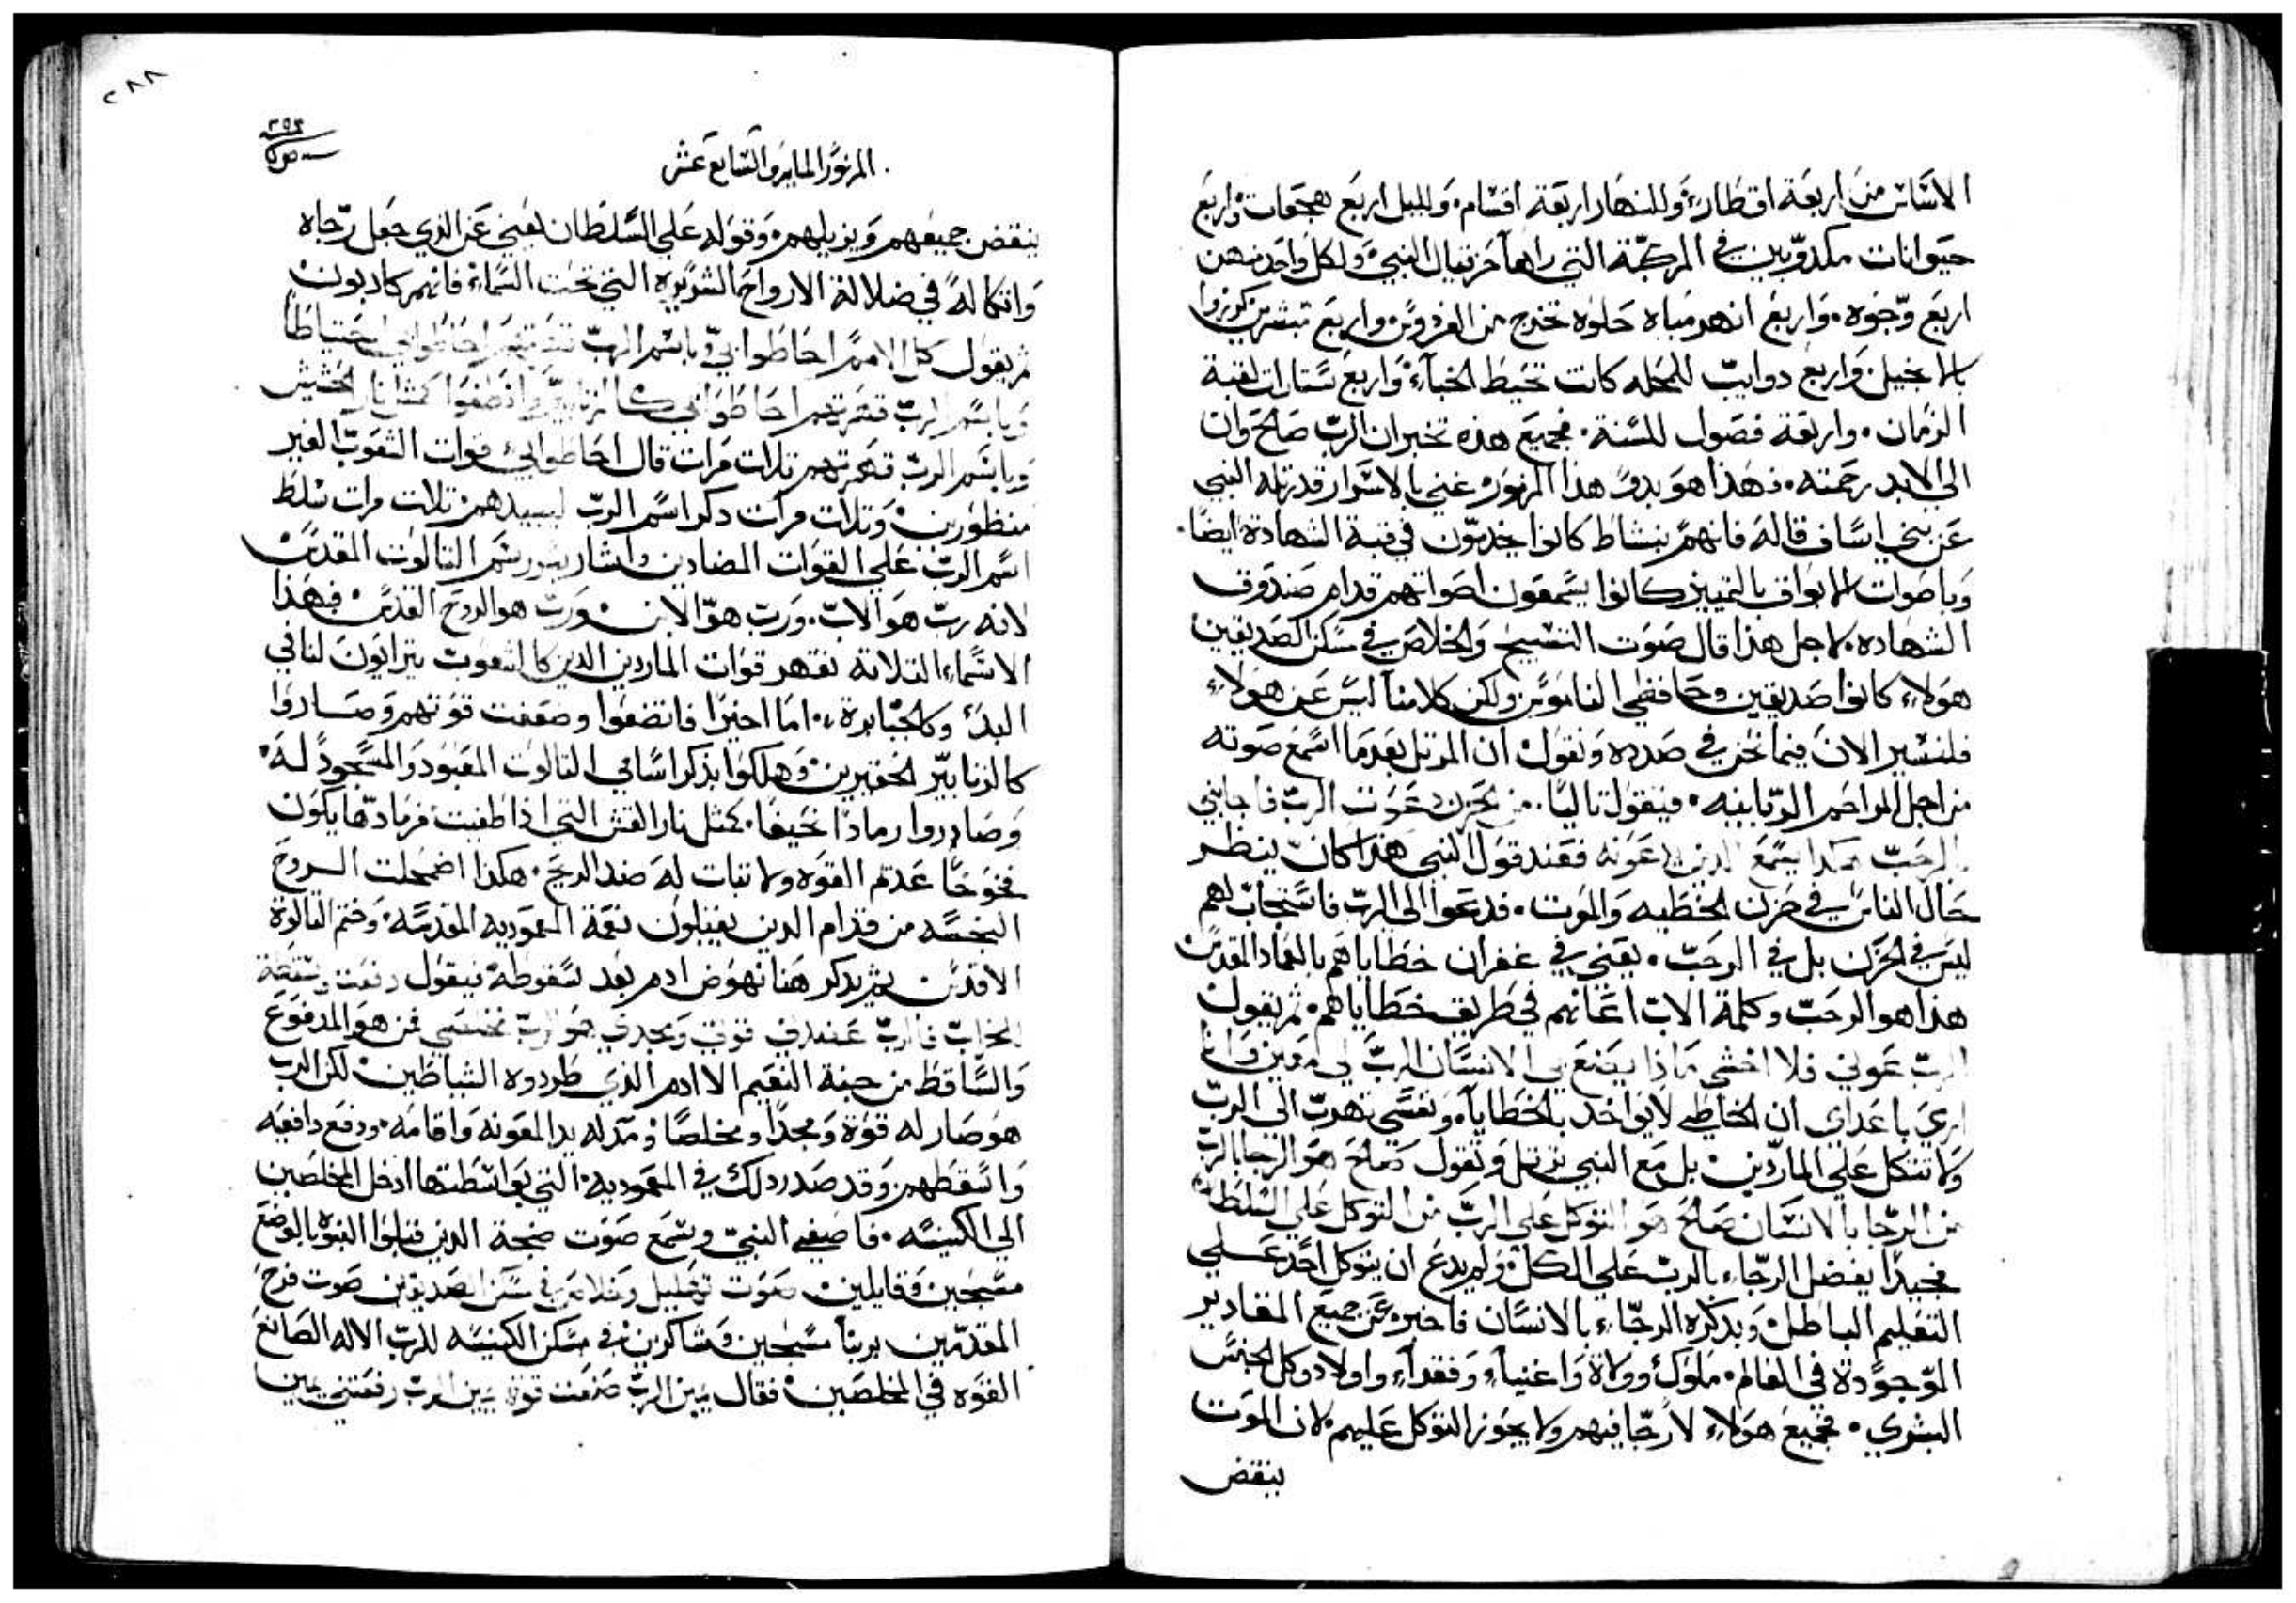 الاساس من اربعة اقطار، وللنهار اربعة اقسام. ولليل اربع هجعات واربع
حيوانات مكدوبين في المركبة التي راها حزتيال النبي ولكل واحد منهن
اربع وجوه. واربع انهر مياه حلوه تخرج من الفردوس واربع مبشرين كرزوا
بالانجيل واربع دوايب للمحله كانت تحيط الخباء، واربع ستارات لقبة
الزمان. واربعة فصول للسنة. فجميع هذه تخبر ان الرب صالح وان
الى الابد رحمته. فهذا هو بدو هذا المزمور عني بالاسرار قدرتله النبي
عن بني اساف قاله فانهم بنشاط كانوا يخدمون في قبة الشهادة ايضا.
وباصوات الابواق بالتمييز كانوا يسمعون اصواتهم قدام صندوق
الشهاده. لاجل هذا قال صوت التسبيح والخلاص في مسكن الصديقين
هولاء كانوا صديقين وحافظي الناموس ولكن كلامنا ليس عن هولاء
فلنشير الان فيما نحن في صدده ونقول ان المرتل بعدما اسمع صوته
من اجل المراحم الربانيه. فيقول تاليا. من الحزن دعوت الرب فاجابني
بالرحب هكذا يسمع الذين يدعونه فعند قول النبي هذا كان ينظر
حال الناس في حزن الخطيه والموت. فدعوا الى الرب فاستجاب لهم
ليس في الحزن بل في الرحب. يعني في غفران خطاياهم بالعماد المقدس
هذا هو الرحب وكلمة الاب اعانهم في طريق خطاياهم. ثم يقول
الرب عوني فلا اخشى ماذا يصنع بي الانسان الرب لي معين وانا
ارى باعداي ان الخاطي لا يواخد بالخطايا. ونفسي تهرب الى الرب
ولا تتكل على الماردين بل مع النبي نرتل ونقول صالح هو الرجا بالرب
من الرجا بالانسان صالح هو التوكل على الرب من التوكل على السلطان
فجيدا يفضل الرجاء بالرب على الكل ولم يدع ان يتوكل احد على
التعليم الباطل وبدكره الرجاء بالانسان فاخبر عن جميع المقادير
الموجودة في العالم. ملوك وولاة واغنياء وفقراء واولاد وكل الجنس
البشري. فجميع هولاء لا رجا فيهم ولا يجوز التوكل عليهم لان الموت
ينقض
٢٨٨
المزمور المايه والسابع عشر
ينقض جميعهم ويزيلهم. وقوله على السلطان يعني عن الذي جعل رجاه
واتكاله في ضلالة الارواح الشريره التي تحت السماء فانهم كادبون
ثم يقول كل الامم احاطوا بي وباسم الرب قهرتهم احاطوا بي احتياطا
وباسم الرب قهرتهم احاطوا بي كالزنابير وانطفوا كمثل نار الحشيش
وباسم الرب قهرتهم تلات مرات قال احاطوا بي قوات التعوب الغير
منظورين وتلات مرات دكر اسم الرب ليبيدهم تلات مرات سلط
اسم الرب على القوات المضادين واشار برسم التالوت المقدس
لانه رب هو الاب. ورب هو الابن ورب هو الروح القدس فهذا
الاسماء التلاته تقهر قوات الماردين الدين كالتعوب يترايون لنا في
البدء وكالجبابرة، اما اخيرا فاتضعوا وضعفت قوتهم وصاروا
كالزنابير الحقيرين وهلكوا بدكر اسامي التالوت المعبود والمسجود له
وصاروا رمادا نحيفا. كمثل نار القش التي اذا طفيت فرمادها يكون
عدم القوه ولا تبات له ضد الريح. هكذا اضمحلت الروح
النجسه من قدام الدين يقبلون نعمة المعموديه المقدسه. وختم التالوة
الاقدس ثم يدكر هنا نهوض ادم بعد سقوطه فيقول دفعت وسقطة
الرب عضدني قوتي ومجدي هو الرب مخلصي فمن هو المدفوع
والساقط من جنة النعيم الا ادم الذي طردوه الشياطين لكن الرب
هو صار له قوة ومجدا ومخلصا ومد له يد المعونه واقامه. ودفع دافعيه
واسقطهم وقد صدر دلك في المعموديه. التي بواسطتها ادخل المخلصين
الى الكنيسه. فاصغى النبي وسمع صوت ضجة الدين قبلوا البنوه بالوضع
مسبحين وقايلين صوت تهليل وخلاص في مسكن الصديقين صوت فرح
المقدسين بربنا مسبحين وشاكرين في مسكن الكنيسه للرب الاله الصانع
القوه في المخلصين فقال يمين الرب صنعت قوة يمين الرب رفعتني يمين